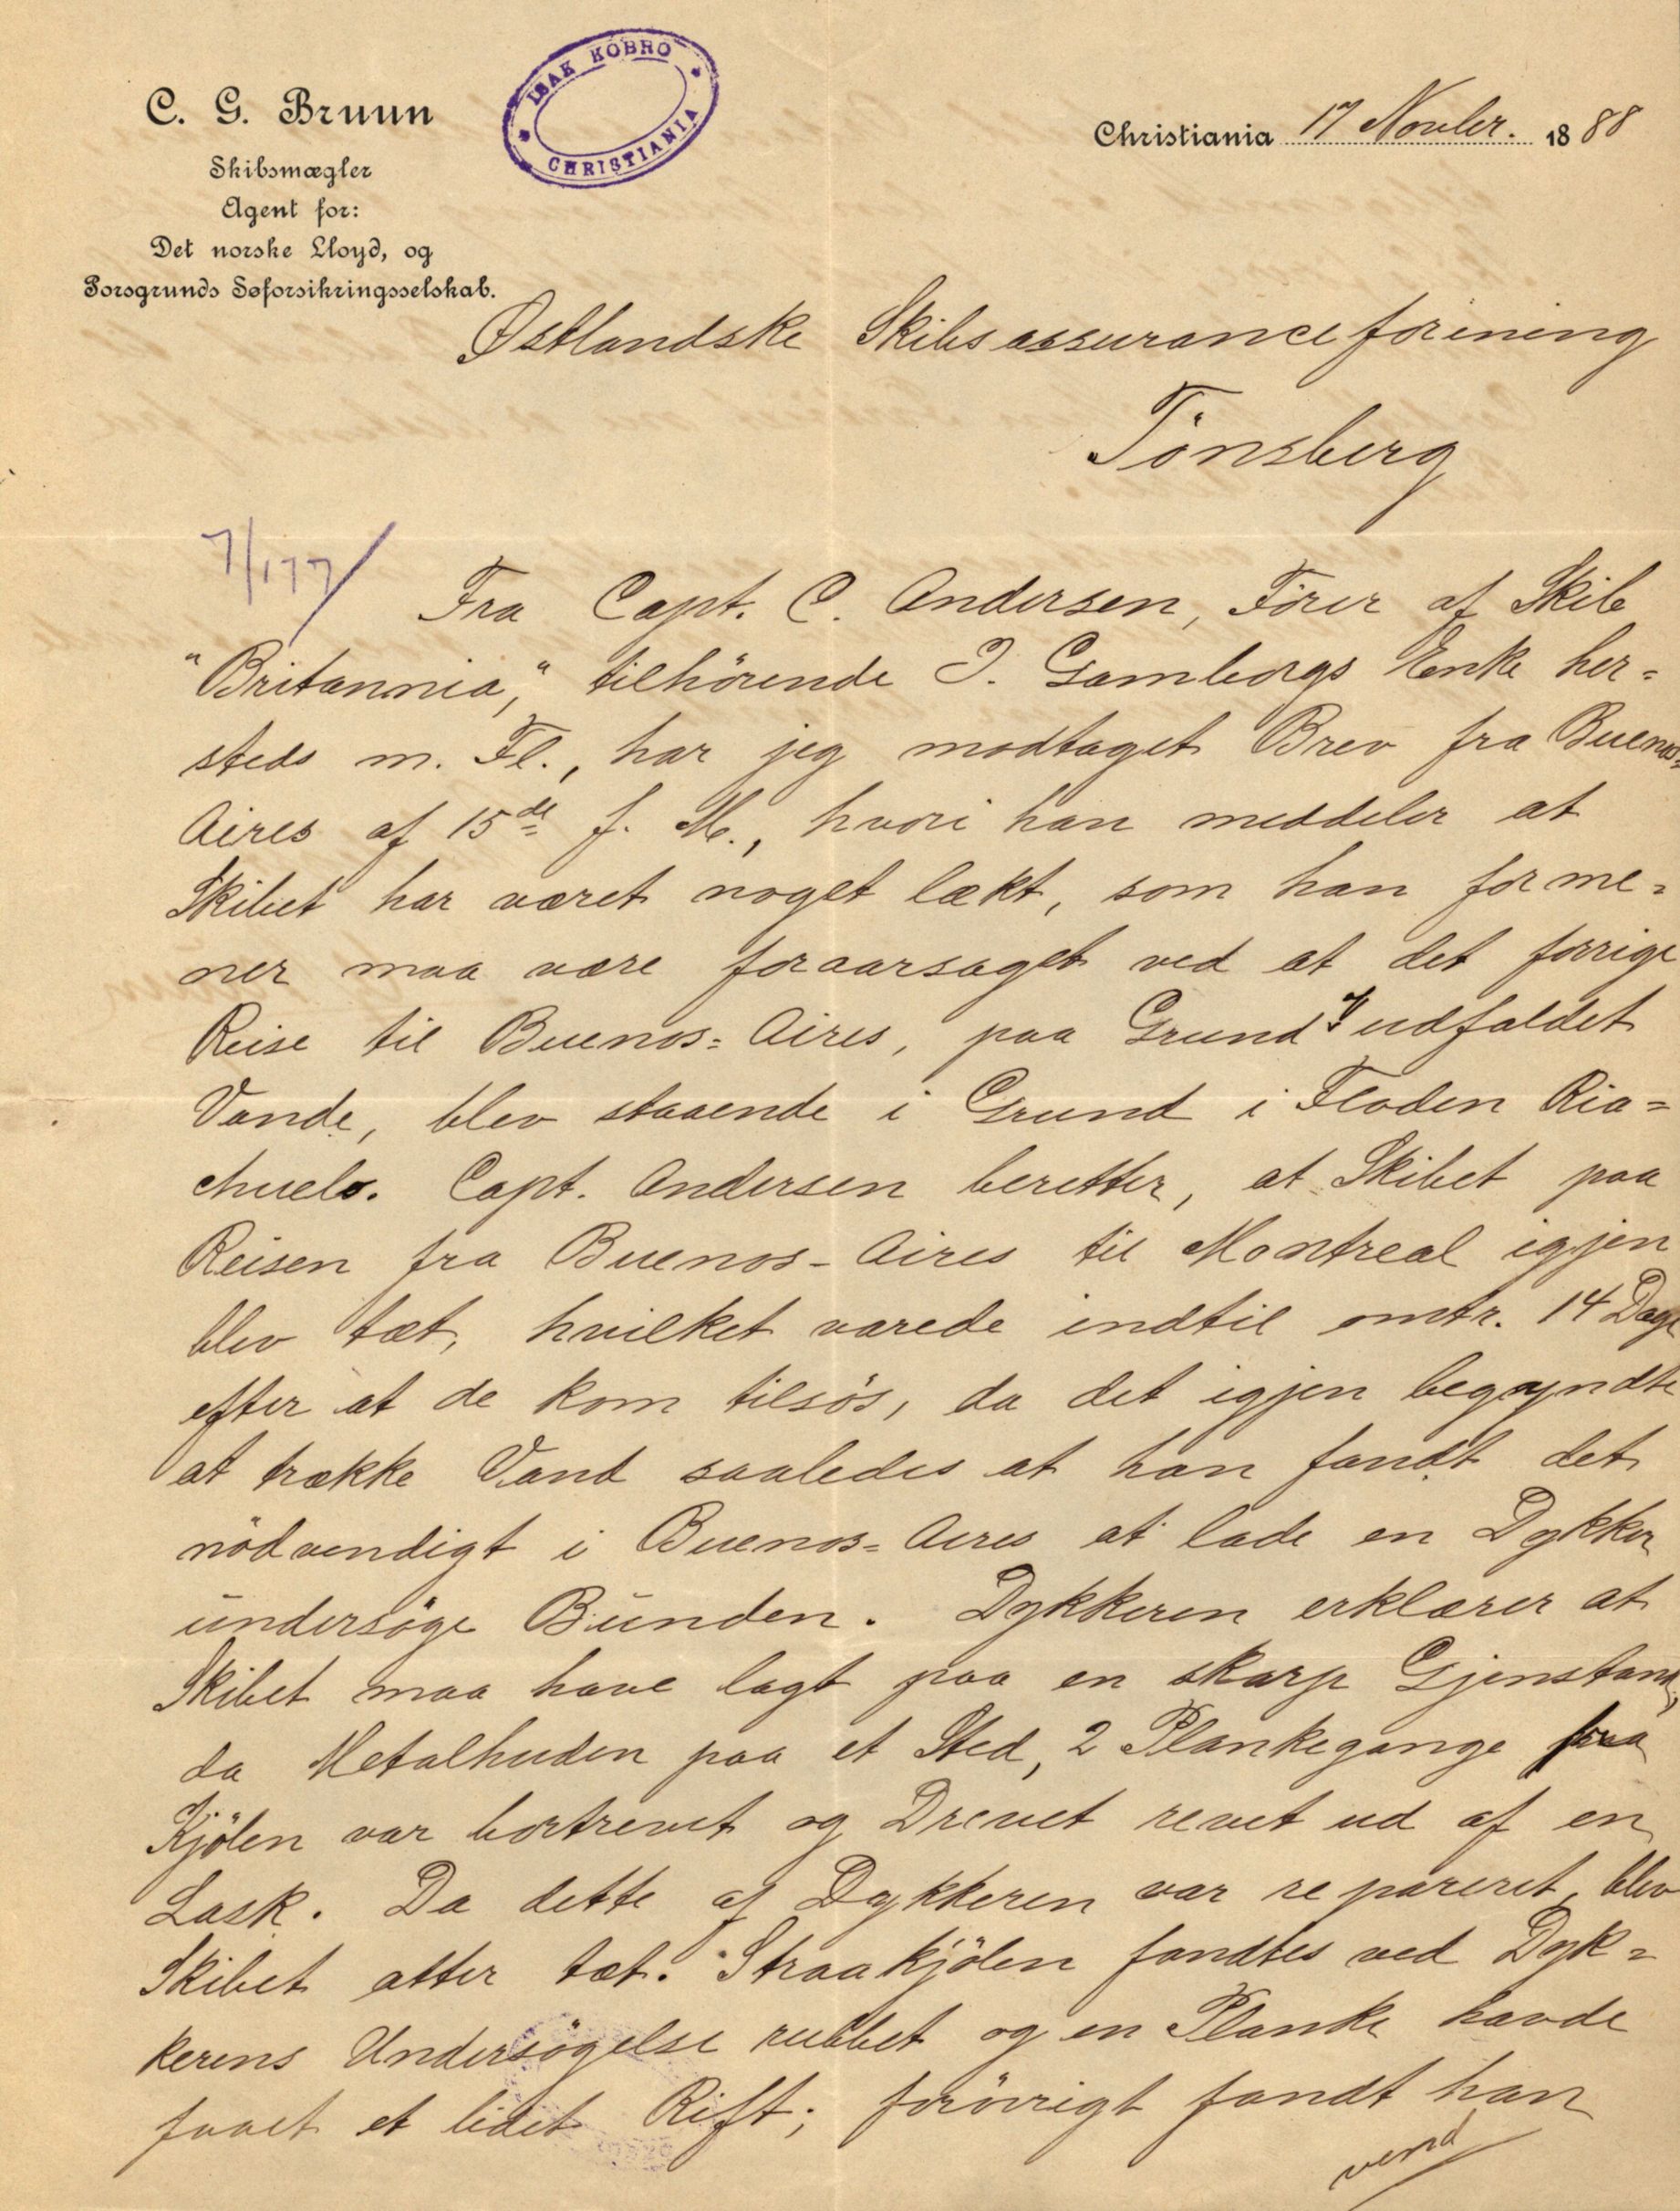 C. G. Bruun
Skibsmægler
Agent for:
Det norske Lloyd, og
Porsgrunds Søforsikringsselskab.
ISAK KOBRO
CHRISTIANIA
Christiania 17 Novber. 1888
Østlandske Skibsassuranceforening
Tönsberg
7/177
Fra Capt. C. Andersen, Förer af Skib
"Britannia", tilhörende I. Gamborgs Enke her=
steds m. Fl., har jeg modtaget Brev fra Buenos=
Aires af 15de f. M., hvori han meddeler at
Skibet har været noget lækt, som han forme=
ner maa være foraarsaget ved at det forrige
Reise til Buenos=Aires, paa Grund af udfaldet
Vande, blev staaende i Grund i Floden Ria=
chuelo. Capt. Andersen beretter, at Skibet paa
Reisen fra Buenos-Aires til Montreal igjen
blev tæt, hvilket varede indtil omtr. 14 Dage
efter at de kom tilsös, da det igjen begyndte
at trække Vand saaledes at han fandt det
nödvendigt i Buenos=Aires at lade en Dykker
undersöge Bunden. Dykkeren erklærer at
Skibet maa have lagt paa en skarp Gjenstand,
da Metalhuden paa et Sted, 2 Plankegange fra
Kjölen var bortrevet og Drevet revet ud af en
Lask. Da dette af Dykkeren var repareret, blev
Skibet atter tæt. Straakjölen fandtes ved Dyk=
kerens Undersögelse rubbet og en Planke havde
faaet et lidet Rift; forövrigt fandt han
vend